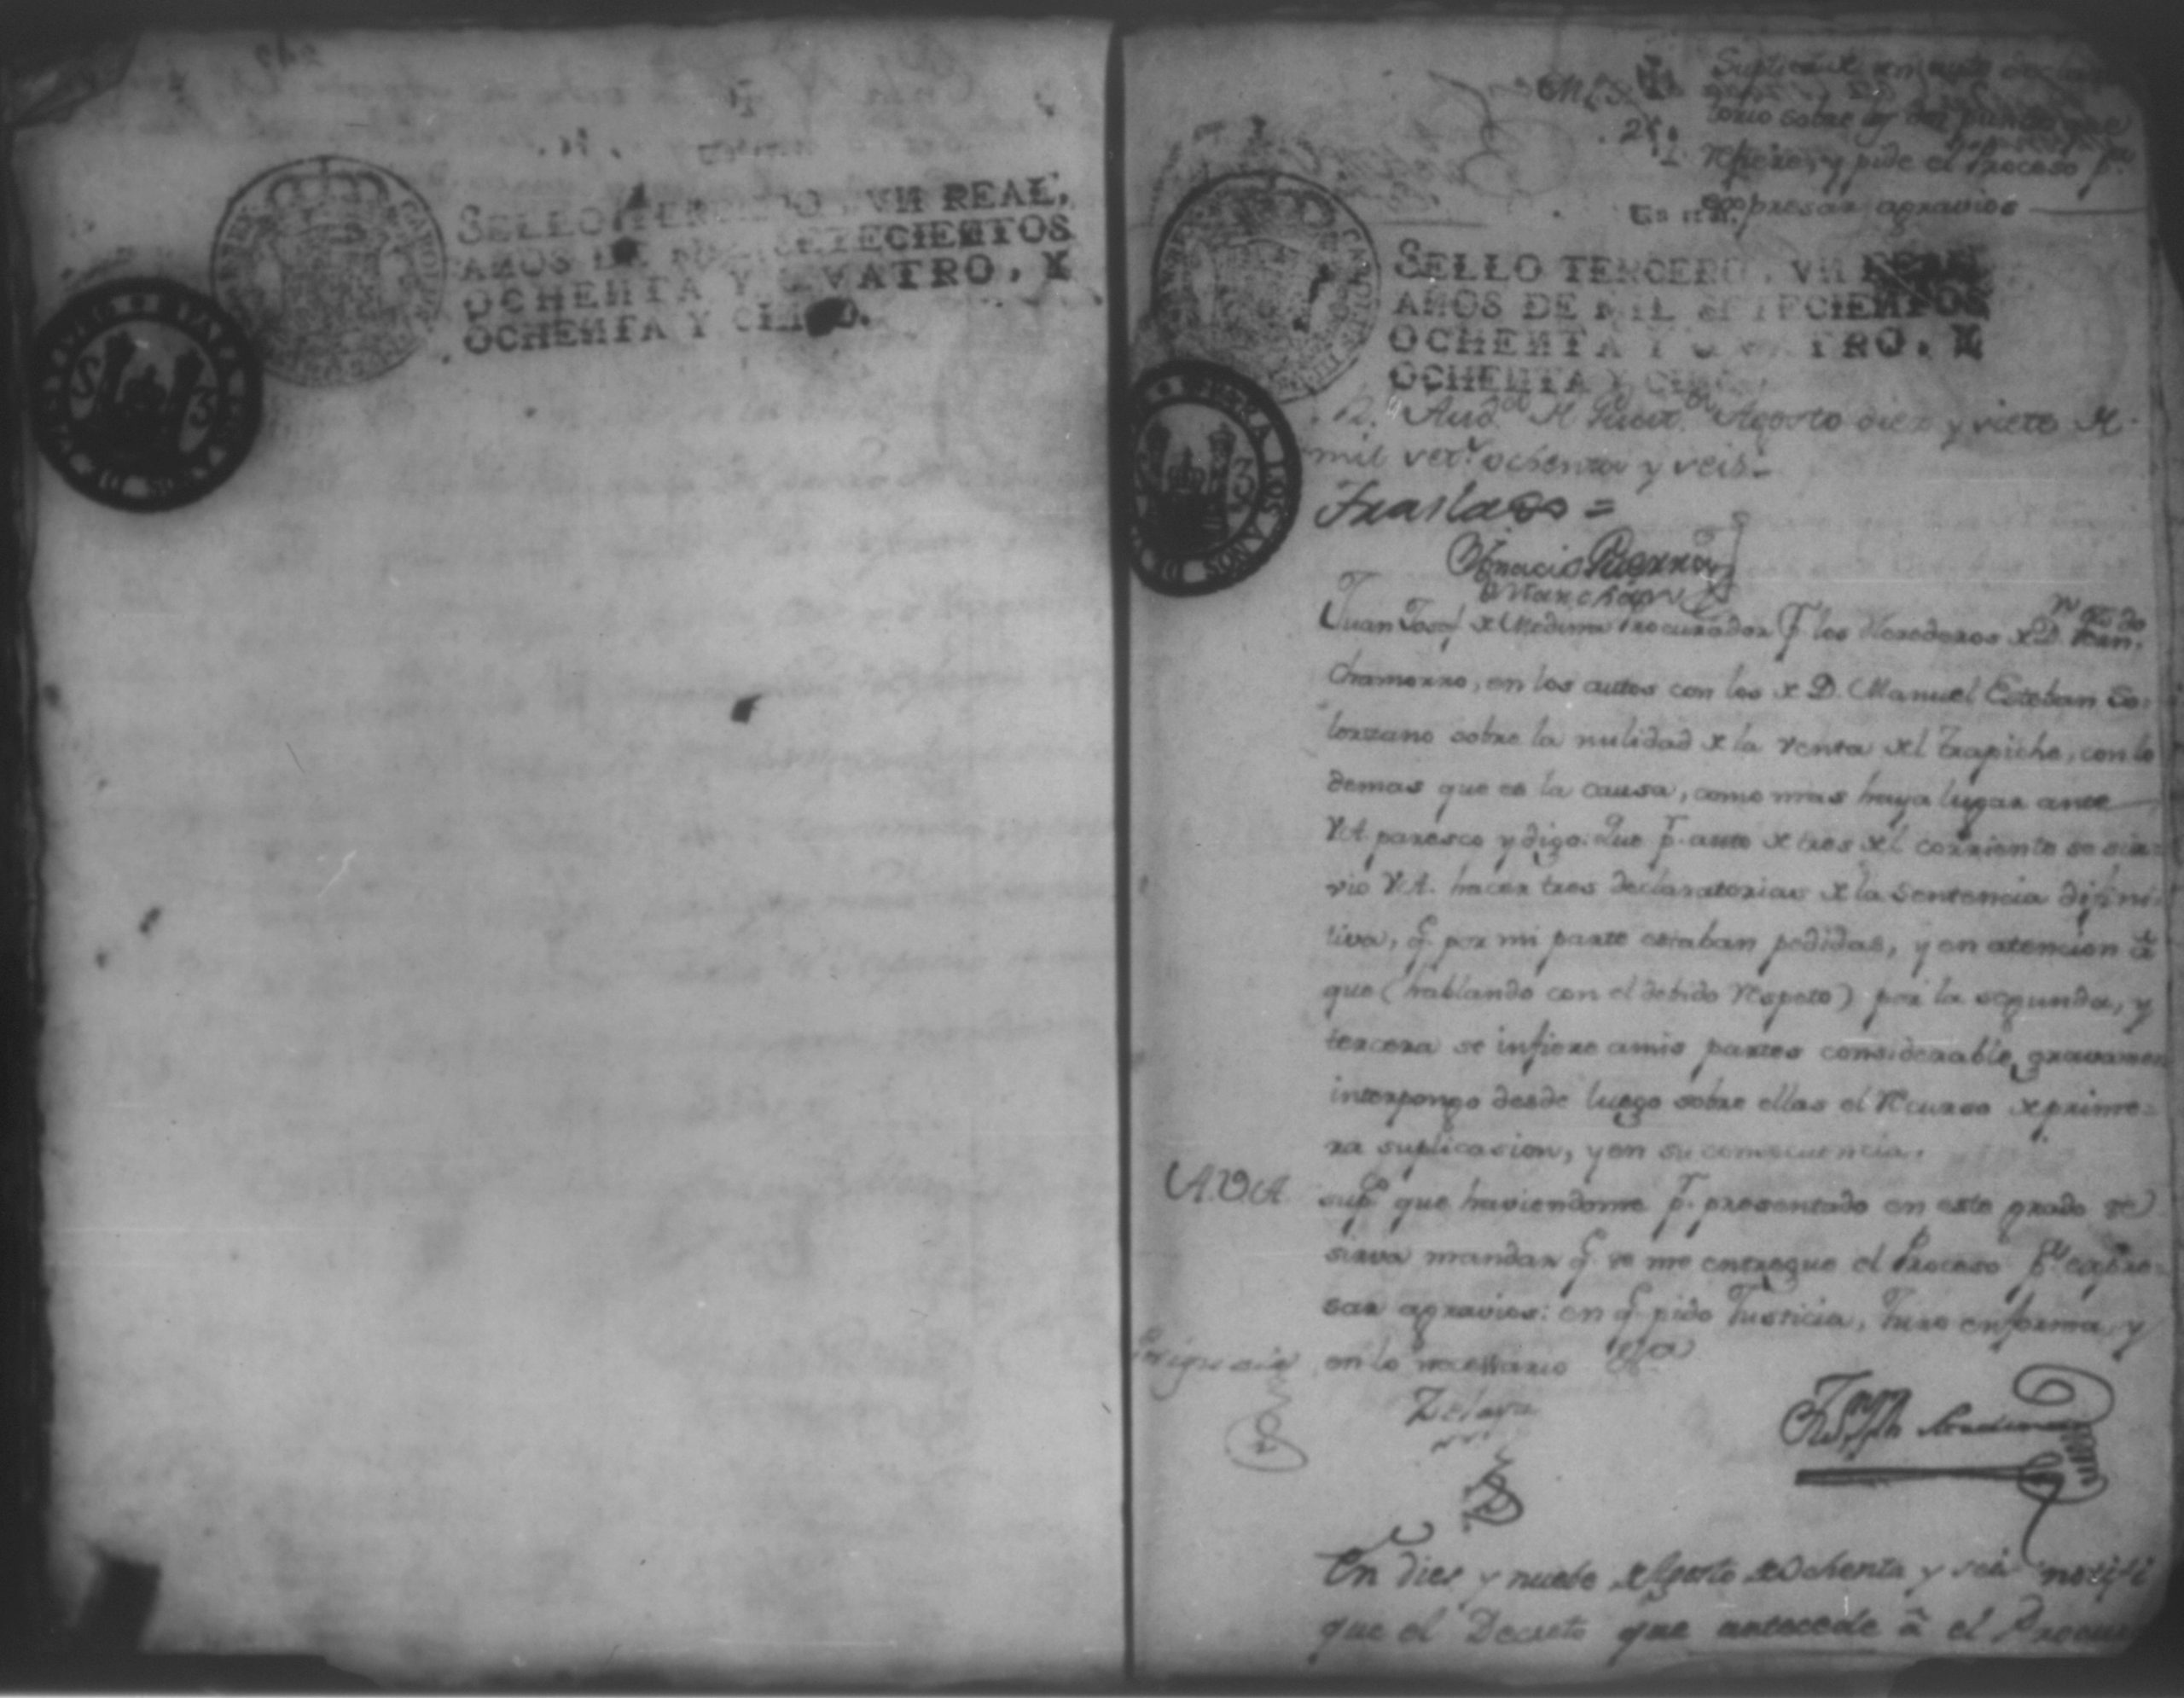 SELLO TERCERO, VN REAL,
AÑOS DE MIL SETECIENTOS
OCHENTA Y QVATRO, Y
OCHENTA Y CINCO.
Suplica de un auto
torio sobre los dos puntos que
refiere, y pide el Proceso pª
expresar agravios
SELLO TERCERO, VN REAL
AÑOS DE MIL SETECIENTOS
OCHENTA Y QVATRO, Y
OCHENTA Y CINCO
Rl Audª de Guatª Agosto diez y siete de
mil setˢ ochenta y seis
Traslado =
Ygnacio Guerra
Marchan
Juan Josef de Medina Procurador pr los Herederos de Dn Ferndo
Chamorro, en los autos con los de D. Manuel Esteban So-
lorzano sobre la nulidad de la venta del trapiche, con lo
demas que es la causa, como mas haya lugar ante
VA. paresco y digo: Que pr auto de tres del corriente se sir-
vio VA. hacer tres declaratorias de la Sentencia difini-
tiva, q. por mi parte estaban pedidas, y en atencion â
que (hablando con el debido respeto) por la segunda, y
tercera se infiere amis partes considerable gravamen
interpongo desde luego sobre ellas el recurso de prime-
ra suplicasion, y en su consecuencia.
A.V.A. supco que haviendome pr presentado en este grado se
sirva mandar q. se me entregue el Proceso pª expre-
sar agravios: en q. pido Justicia, Juro en forma, y
en lo necessario &a
Zelaya
En dies y nuebe de Agosto de Ochenta y seis notifi
que el Decreto que antecede â el Procu